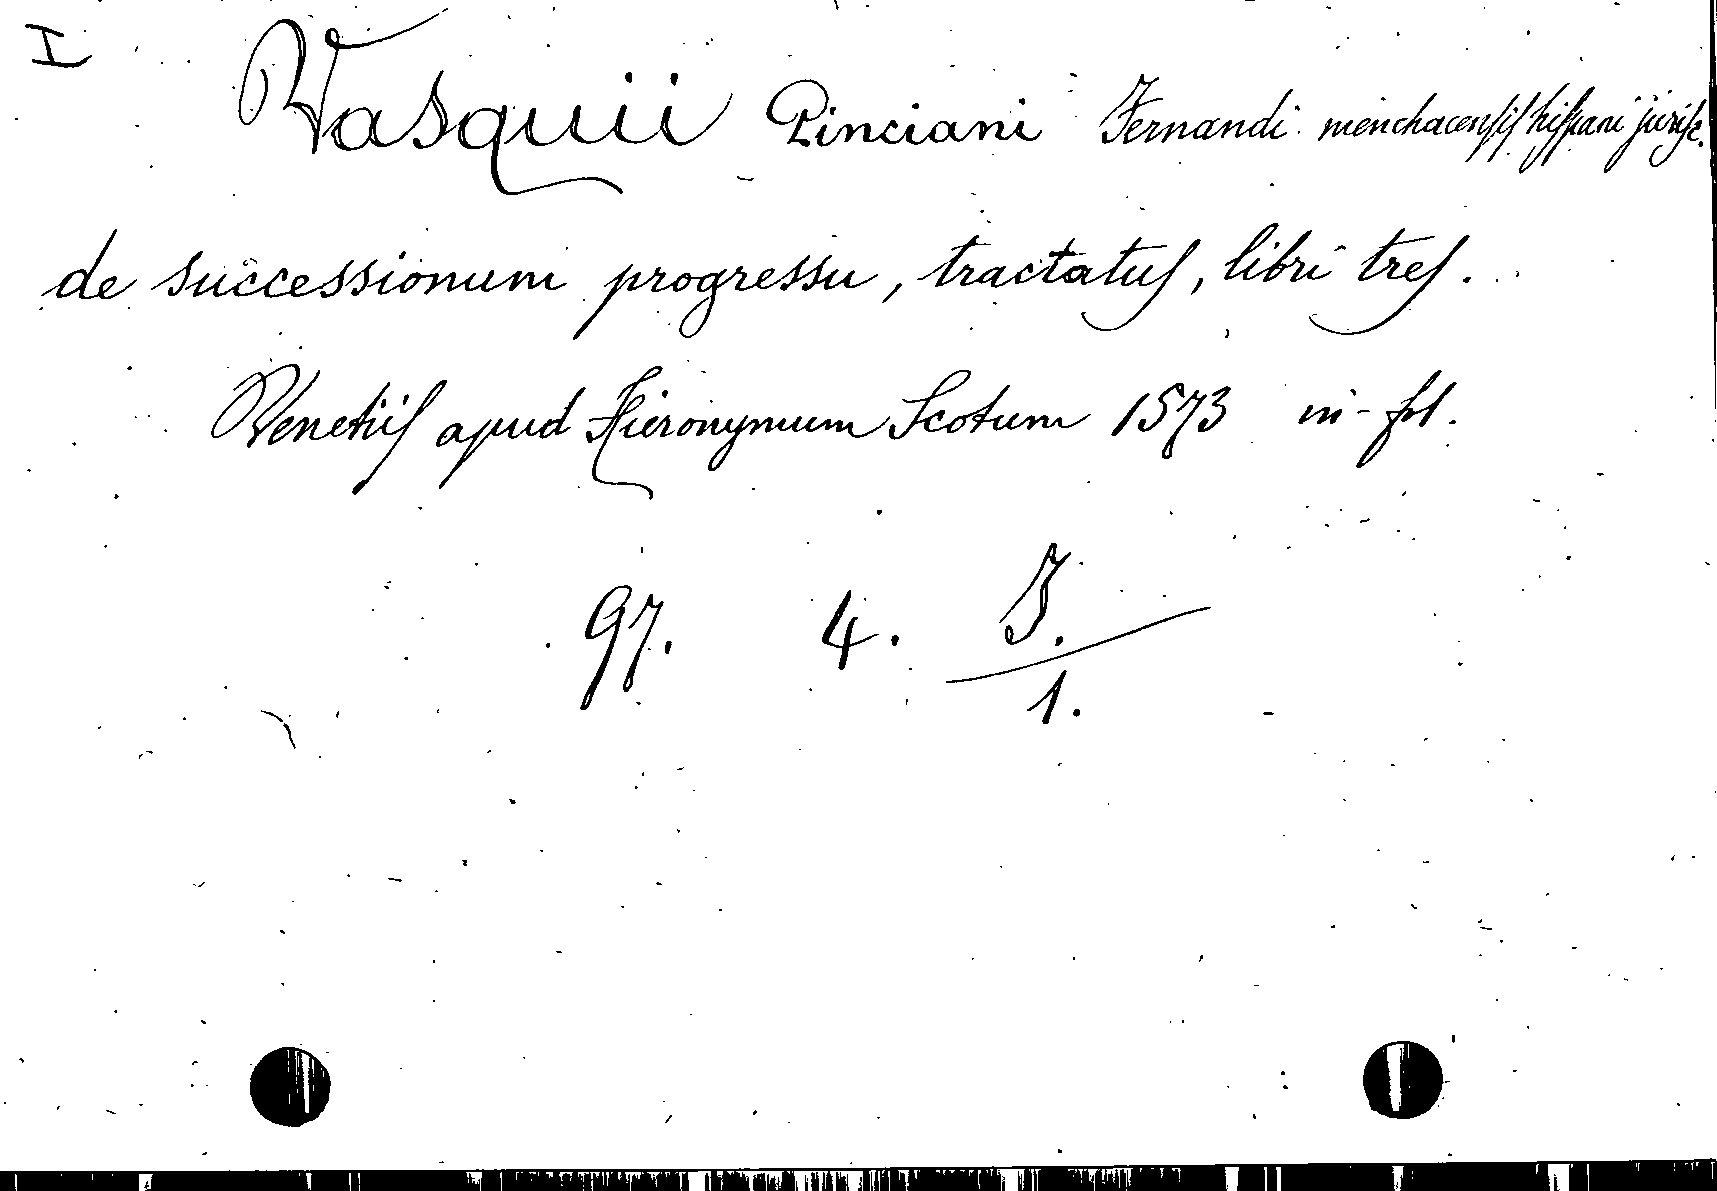 I Vasquii Pinciani Fernandi menchacensis hispani jurisc.
de successionum progressu, tractatus, libri tres.
Venetiis apud Hieronymum Scotum 1573 in-fol.
97. 4. J.
1.